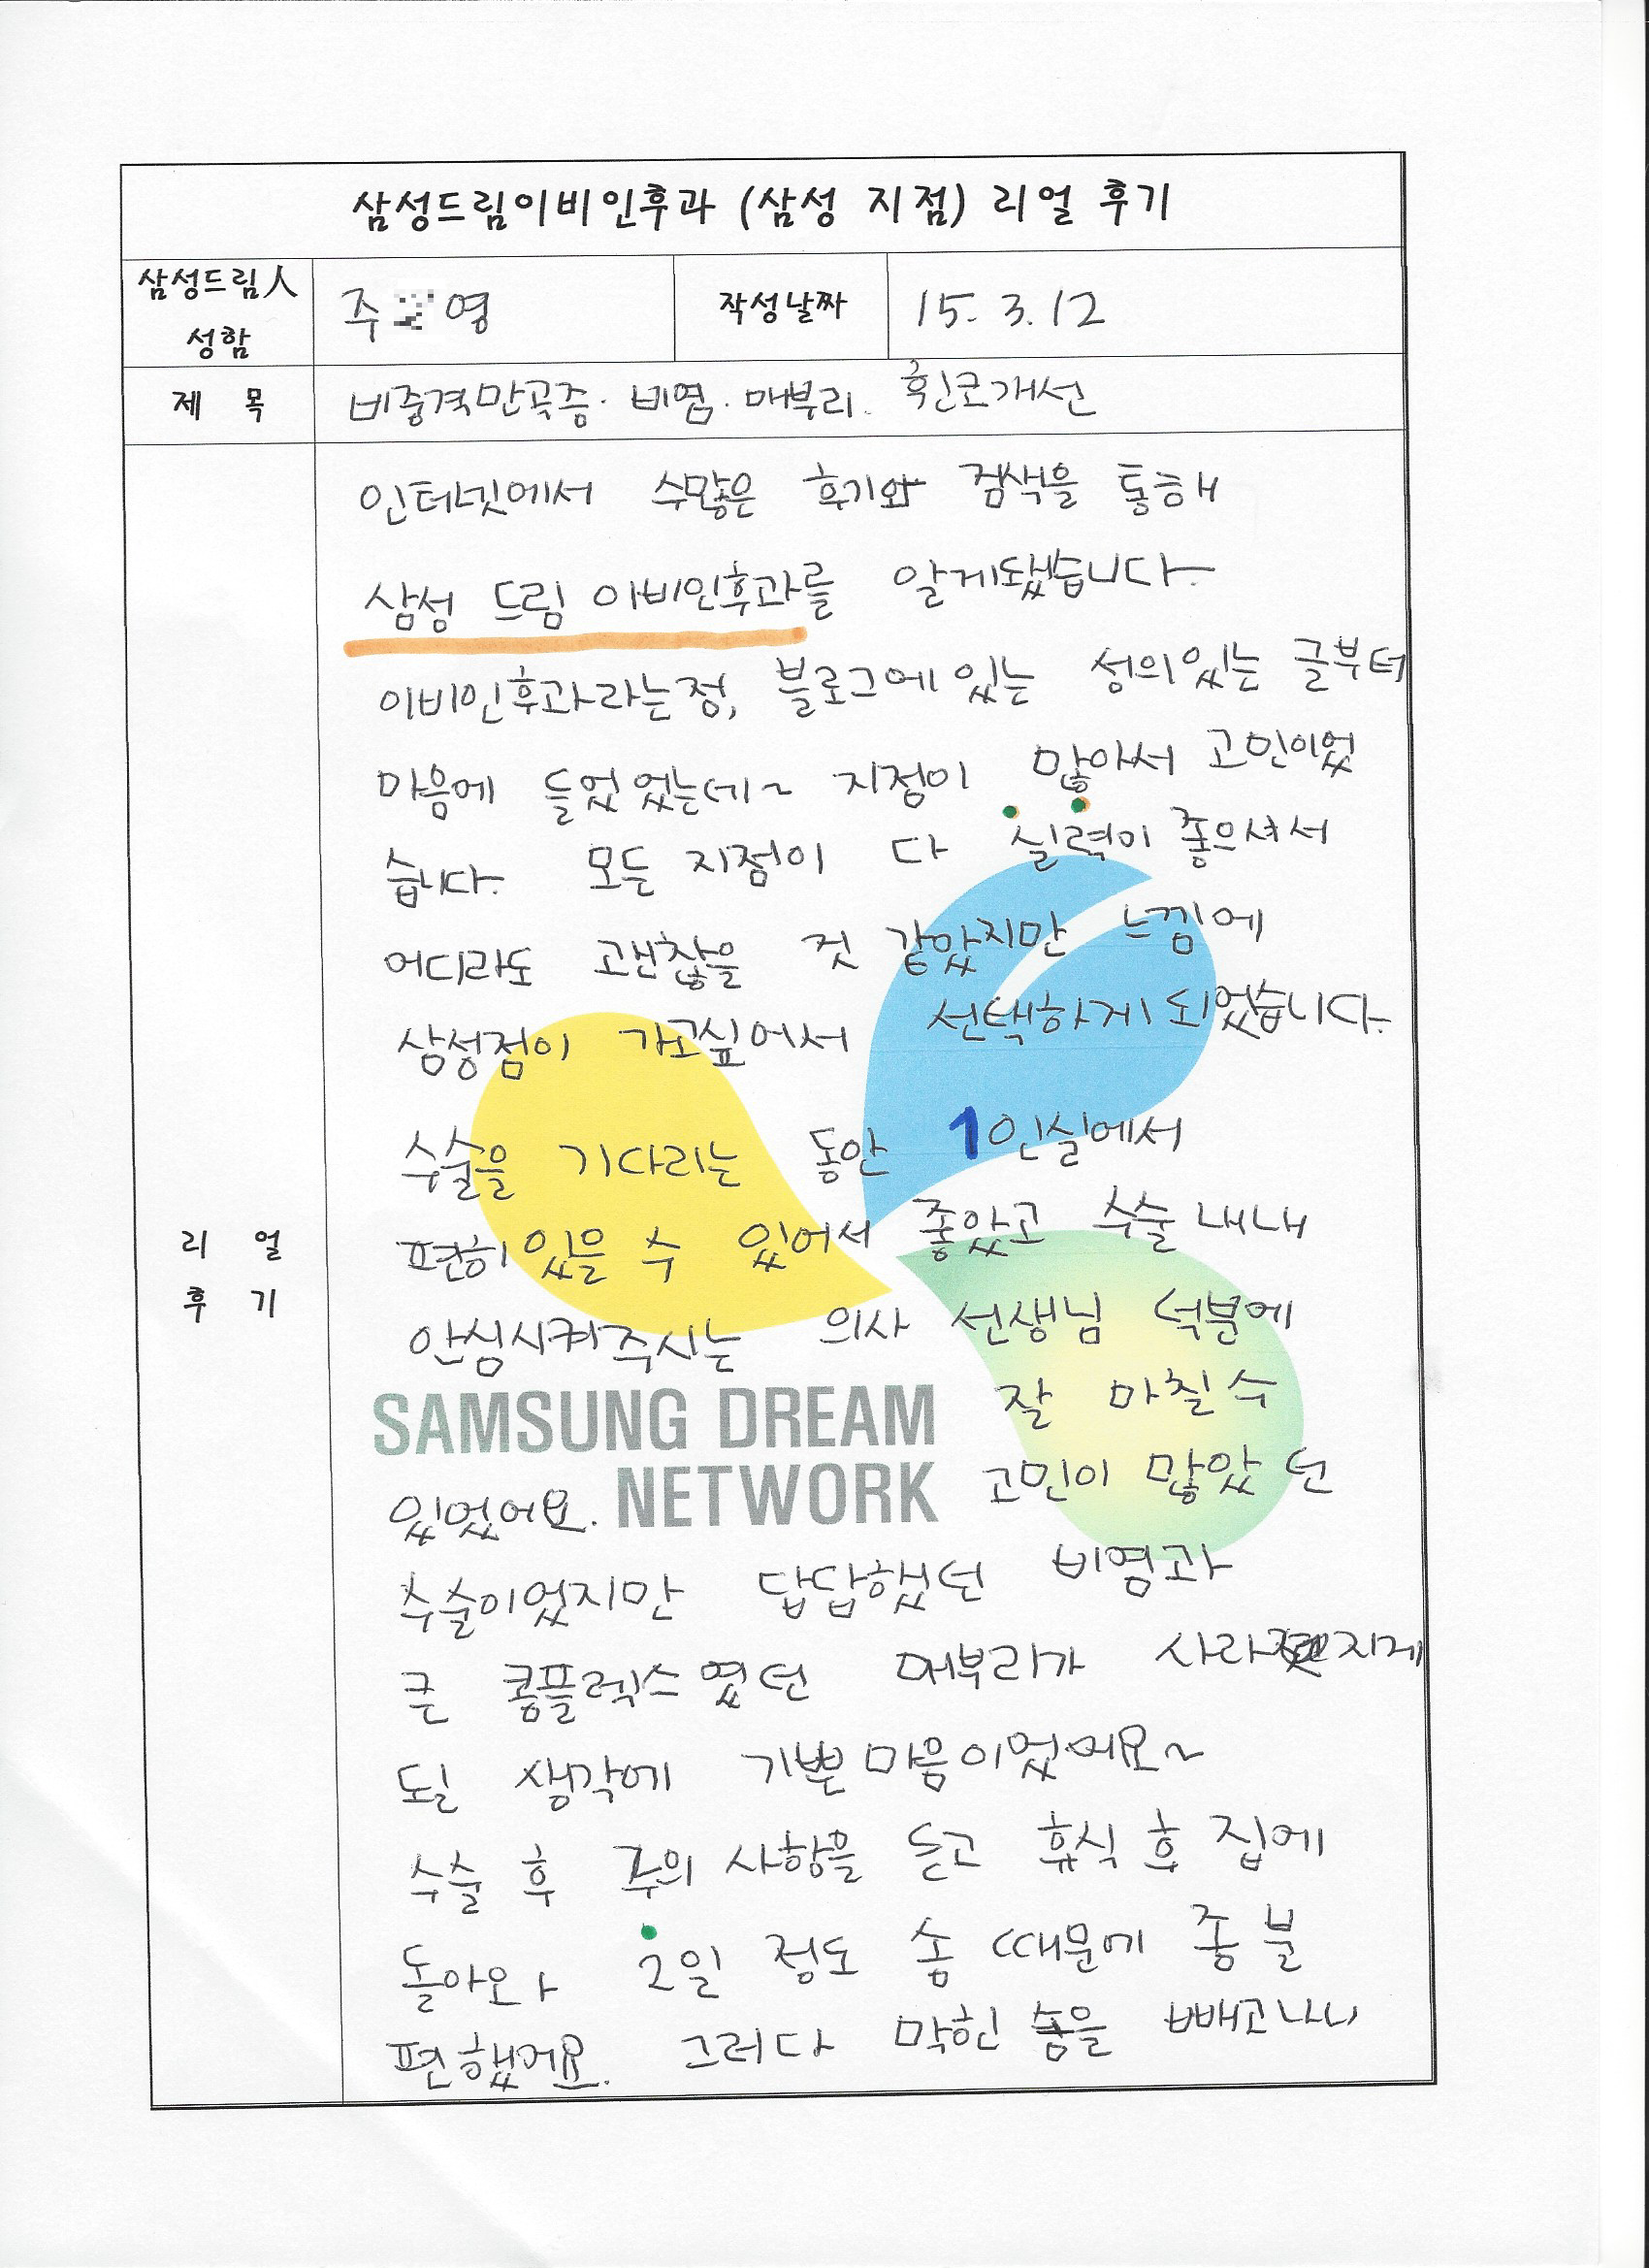 삼성드림이비인후과 (삼성 지점) 리얼 후기
삼성드림人
성함
주 영
작성날짜
15. 3. 12
제 목
비중격만곡증. 비염. 매부리. 휜코개선
인터넷에서 수많은 후기와 검색을 통해
삼성 드림 이비인후과를 알게됐습니다.
이비인후과라는점, 블로그에 있는 성의있는 글부터
마음에 들었었는데~ 지점이 많아서 고민이었
습니다. 모든 지점이 다 실력이 좋으셔서
어디라도 괜찮을 것 같았지만 느낌에
삼성점이 가고싶어서 선택하게 되었습니다.
수술을 기다리는 동안 1인실에서
편히 있을 수 있어서 좋았고 수술 내내
안심시켜주시는 의사 선생님 덕분에
잘 마칠 수
SAMSUNG DREAM
NETWORK
있었어요. 고민이 많았던
수술이었지만 답답했던 비염과
큰 콤플렉스였던 매부리가 사라지게
될 생각에 기쁜 마음이었어요~
수술 후 주의 사항을 듣고 휴식 후 집에
돌아와 2일 정도 솜 때문에 좀 불
편했어요. 그러다 막힌 솜을 빼고나니
리 얼
후 기